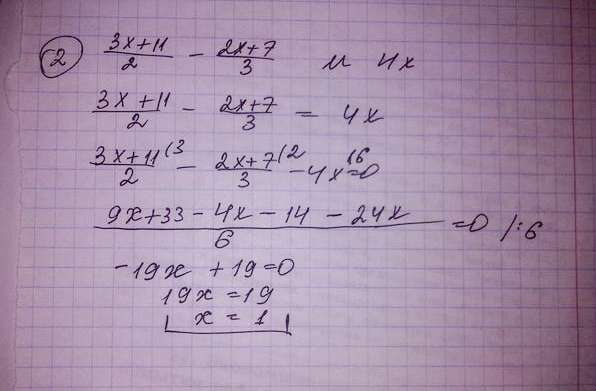 2 (3x+11)/2 - (2x+7)/3 и 4x
(3x+11)/2 - (2x+7)/3 = 4x
(3x+11)/2 (3 - (2x+7)/3 (2 - 4x (6 =0
(9x+33-4x-14-24x)/6 =0 /:6
-19x+19=0
19x=19
x=1